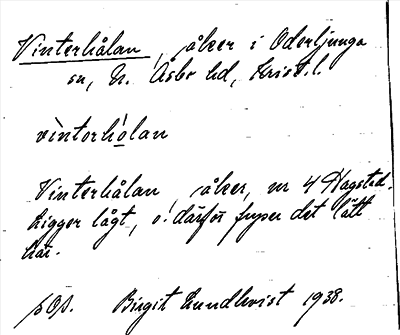 Vinterhålan, åker i Oderljunga
sn, N. Åsbo hd, Krist. l.
vìntorhòlan
Vinterhålan åker, nr 4 Hagstad.
Ligger lågt, o. därför fryser det lätt
här.
Birgit Lundkvist 1938.